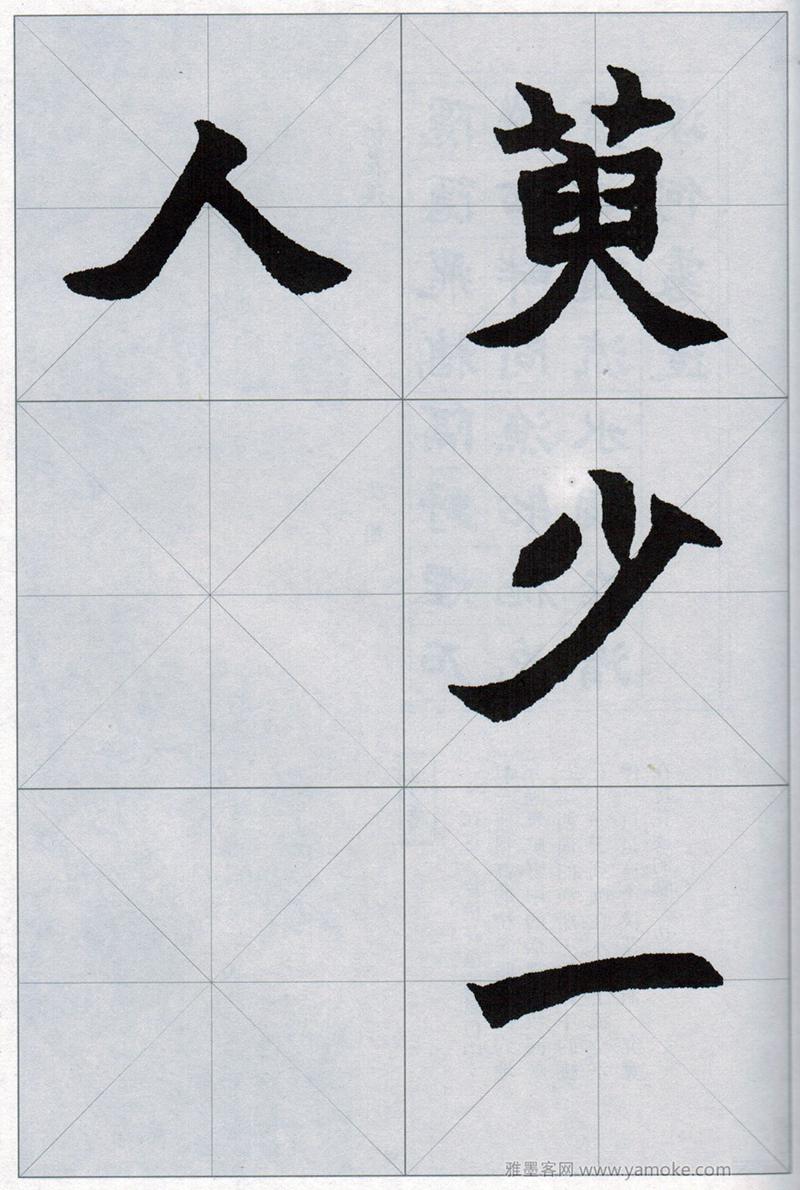 萸少一
人
雅墨客网 www.yamoke.com